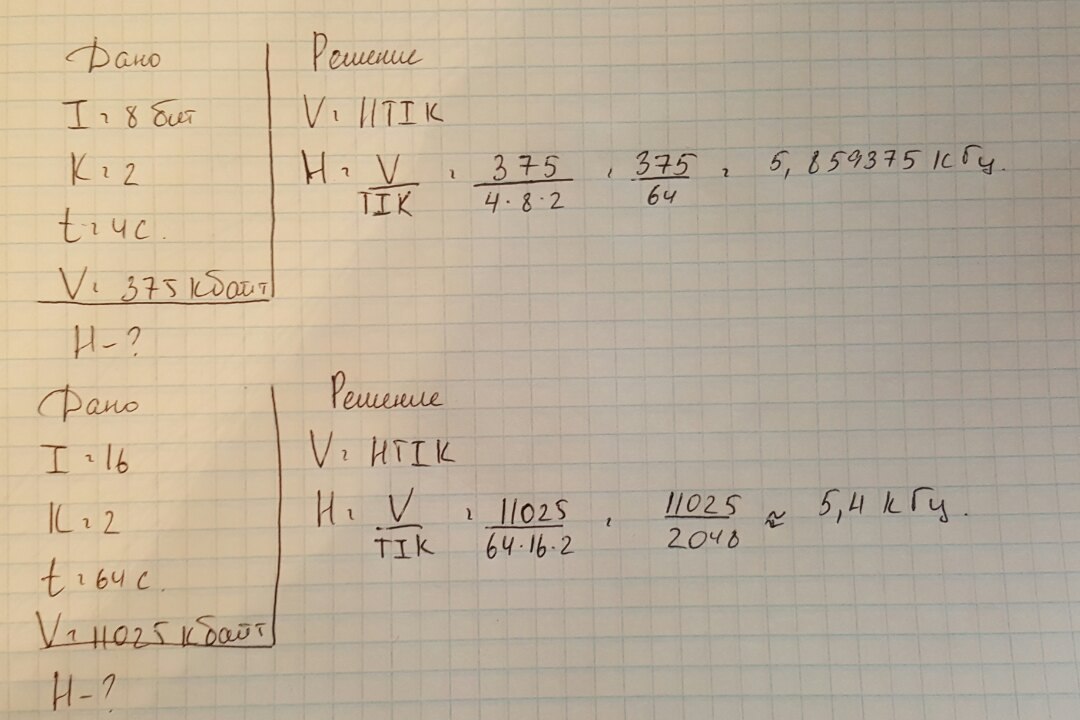 Дано
I = 8 бит
K = 2
t = 4 с.
V = 375 Кбайт
H - ?
Решение
V = HTIK
H = V/TIK = 375/4·8·2 = 375/64 = 5,859375 кГц.
Дано
I = 16
K = 2
t = 64 с.
V = 11025 Кбайт
H - ?
Решение
V = HTIK
H = V/TIK = 11025/64·16·2 = 11025/2048 ≈ 5,4 кГц.